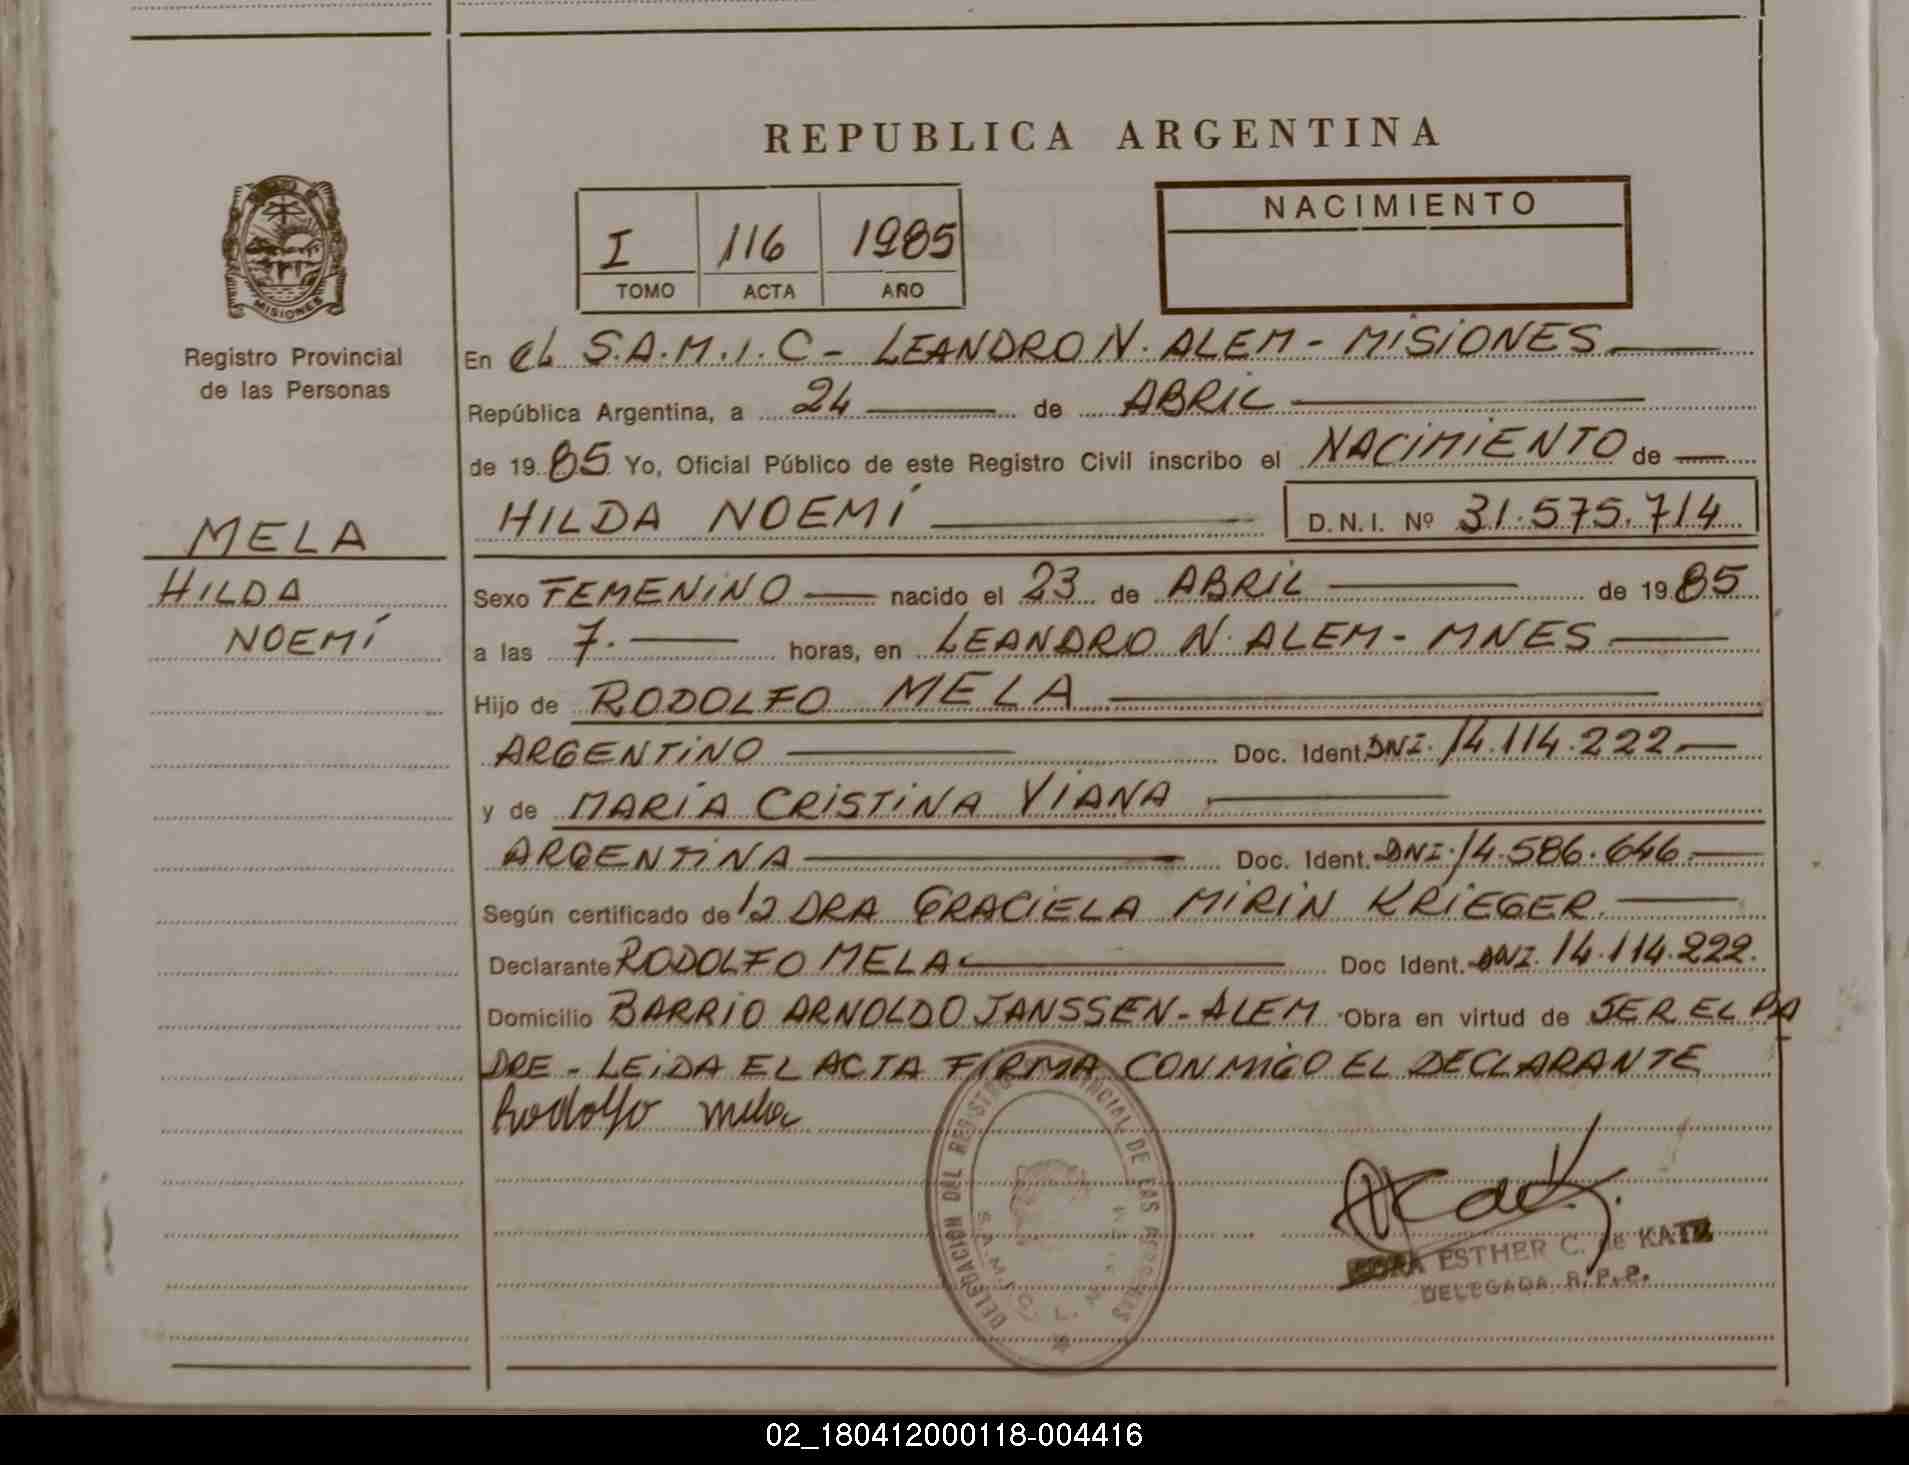 REPUBLICA ARGENTINA
I 116 1985
TOMO ACTA AÑO
NACIMIENTO
MISIONES
Registro Provincial
de las Personas
MELA
HILDA
NOEMÍ
En el S.A.M.I.C - LEANDRO N. ALEM - MISIONES
República Argentina, a 24 de ABRIL
de 1985 Yo, Oficial Público de este Registro Civil inscribo el NACIMIENTO de
HILDA NOEMÍ D.N.I. Nº 31.575.714
Sexo FEMENINO nacido el 23 de ABRIL de 1985
a las 7. horas, en LEANDRO N. ALEM - MNES
Hijo de RODOLFO MELA
ARGENTINO Doc. Ident. DNI. 14.114.222
y de MARÍA CRISTINA VIANA
ARGENTINA Doc. Ident. DNI. 14.586.646
Según certificado de la DRA GRACIELA MIRIN KRIEGER
Declarante RODOLFO MELA Doc Ident. DNI. 14.114.222.
Domicilio BARRIO ARNOLDO JANSSEN - ALEM Obra en virtud de SER EL PA
DRE - LEIDA EL ACTA FIRMA CONMIGO EL DECLARANTE
Rodolfo Mela
DELEGACION DEL DE LAS
S.A.M.I.C.
ESTHER C. de KATZ
DELEGADA R.P.P.
02_180412000118-004416